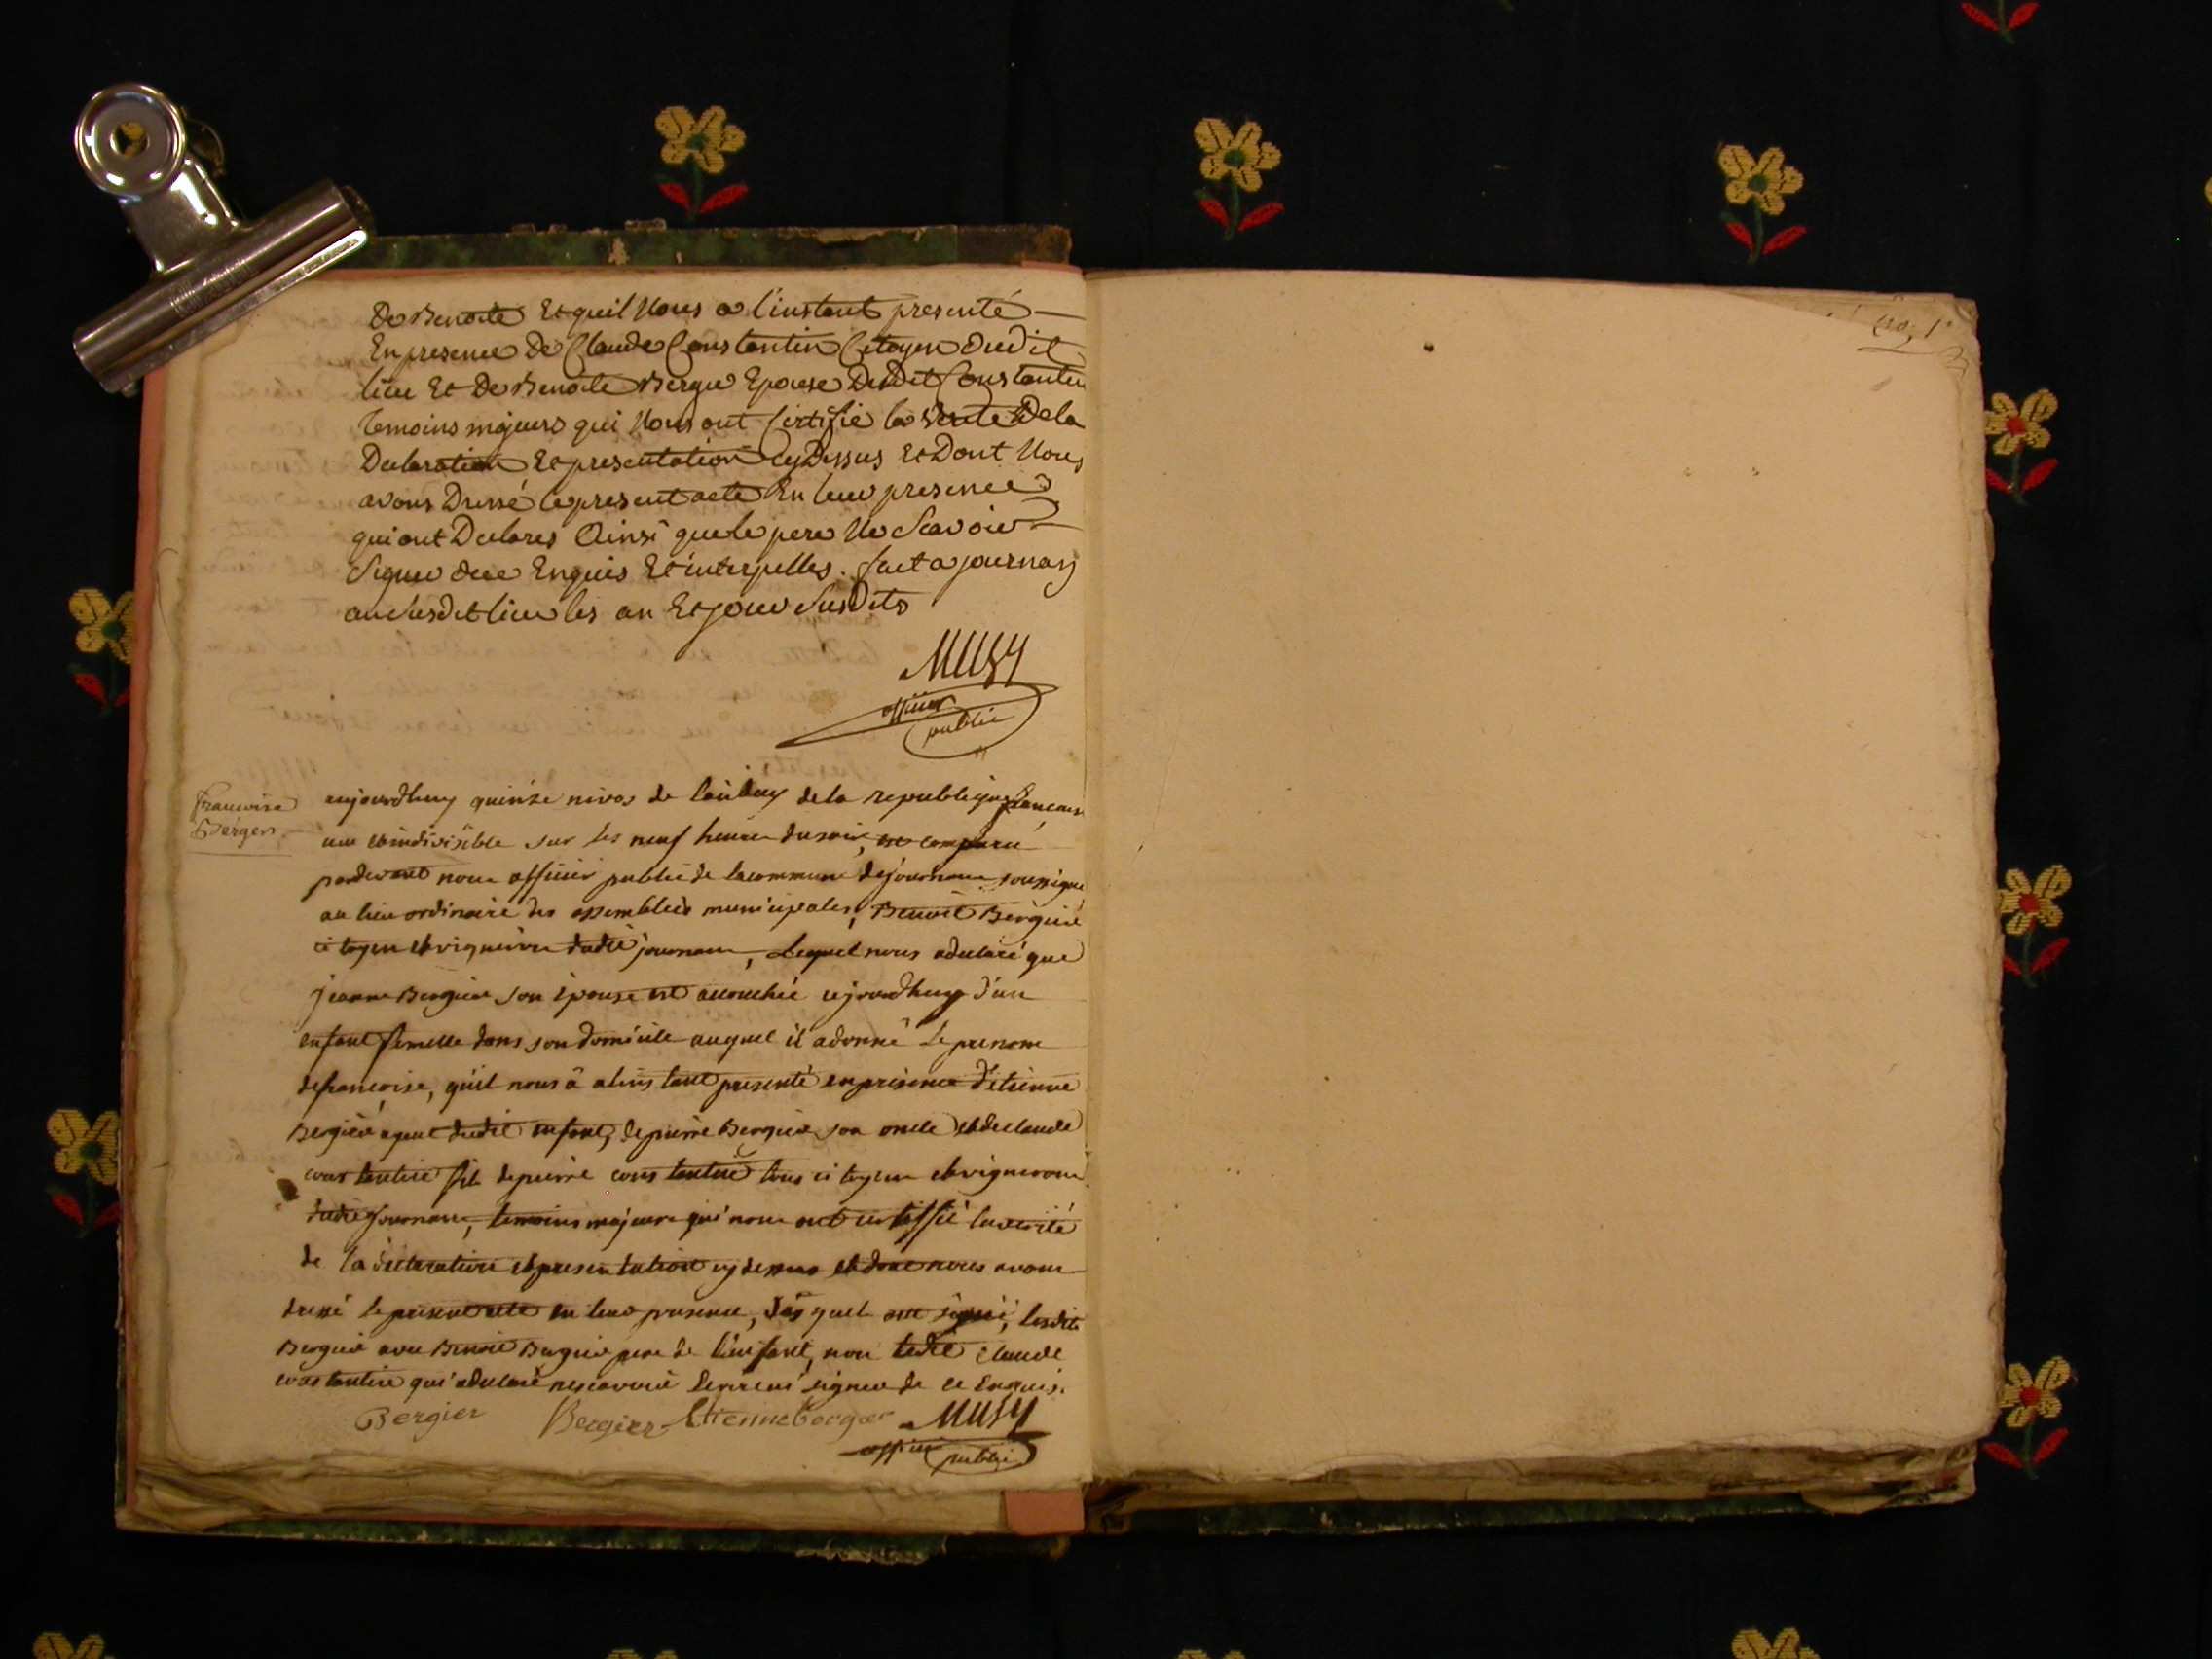 de Benoite Et quil Nous a l'instant presenté
En presence de Claude Constantin Citoyen dudit
lieu Et de Benoite Bergie Epouse Dudit Constantin
temoins majeurs qui Nous ont Certifié la Verité De la
Declaration Et presentation cy Dessus Et Dont Nous
avons Dressé le present acte En leur presence
qui ont Declarés Ainsi que le pere Ne Scavoir
Signer de ce Enquis Et interpellés. fait a journan
au susdit lieu les an Et jour Susdits
Musy
officier
public
francoise
Bergier
aujourdhuy quinze nivos de l'an de la republique francaise
une et indivisible sur les neuf heures du soir, est comparu
pardevant nous officier public de la commune de journans soussigné
au lieu ordinaire des assemblées municipales, Benoit Bergier
citoyen et vigneron dudit journans, Lequel nous a declaré que
jeanne Bergier son épouse est accouchée cejourdhuy d'un
enfant femelle dans son domicile auquel il a donné Le prenom
de francoise, qu'il nous à a lins tant presenté en presence d'etienne
Bergier agent dudit enfant, de pierre Bergier son oncle et de claude
constantin fils de pierre constantin tous citoyens et vignerons
dudit journans, temoins majeurs qui nous ont certiffié la verité
de la declaration et presentation cy dessus et dont nous avons
dressé le present acte en leur presence, lesquels ont signé, lesdits
Bergier avec Benoit Bergier pere de l'enfant, non ledit claude
constantin qui a declaré ne scavoir signer de ce Enquis.
Bergier Bergier Etienne bergier Musy
officier public